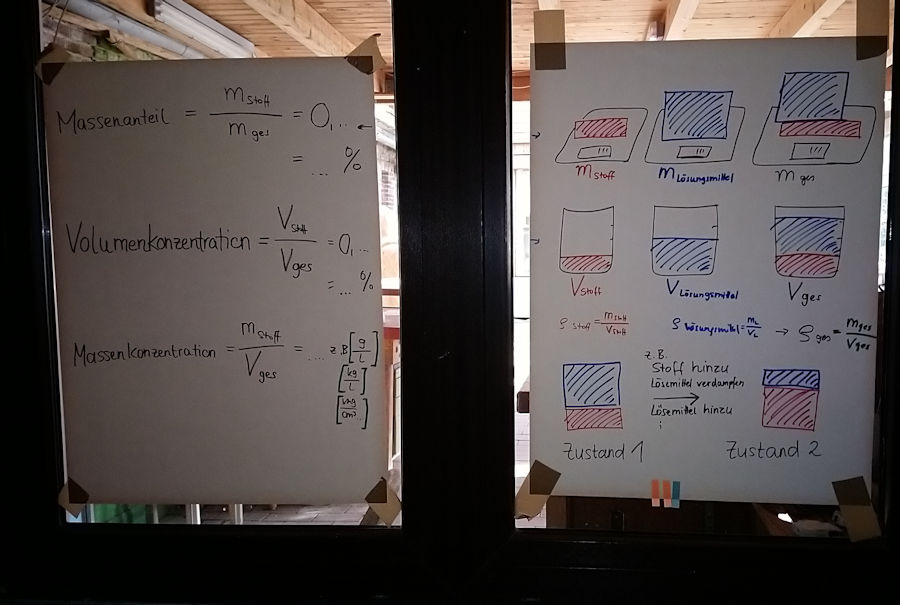 Massenanteil = m Stoff / m ges = 0,... ←
= ... %
Volumenkonzentration = V Stoff / V ges = 0,...
= ... %
Massenkonzentration = m Stoff / V ges = .... z.B [g/L]
[kg/L]
m Stoff
m Lösungsmittel
m ges
V Stoff
V Lösungsmittel
V ges
ρ Stoff = m Stoff / V Stoff
ρ Lösungsmittel = m L / V L → ρ ges = m ges / V ges
z.B.
Stoff hinzu
Lösemittel verdampfen
Lösemittel hinzu
Zustand 1
Zustand 2